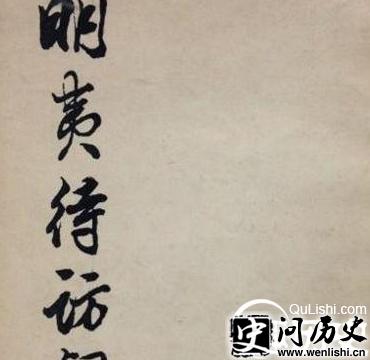 明夷待访
QuLishi.com
史问历史
www.wenlishi.com